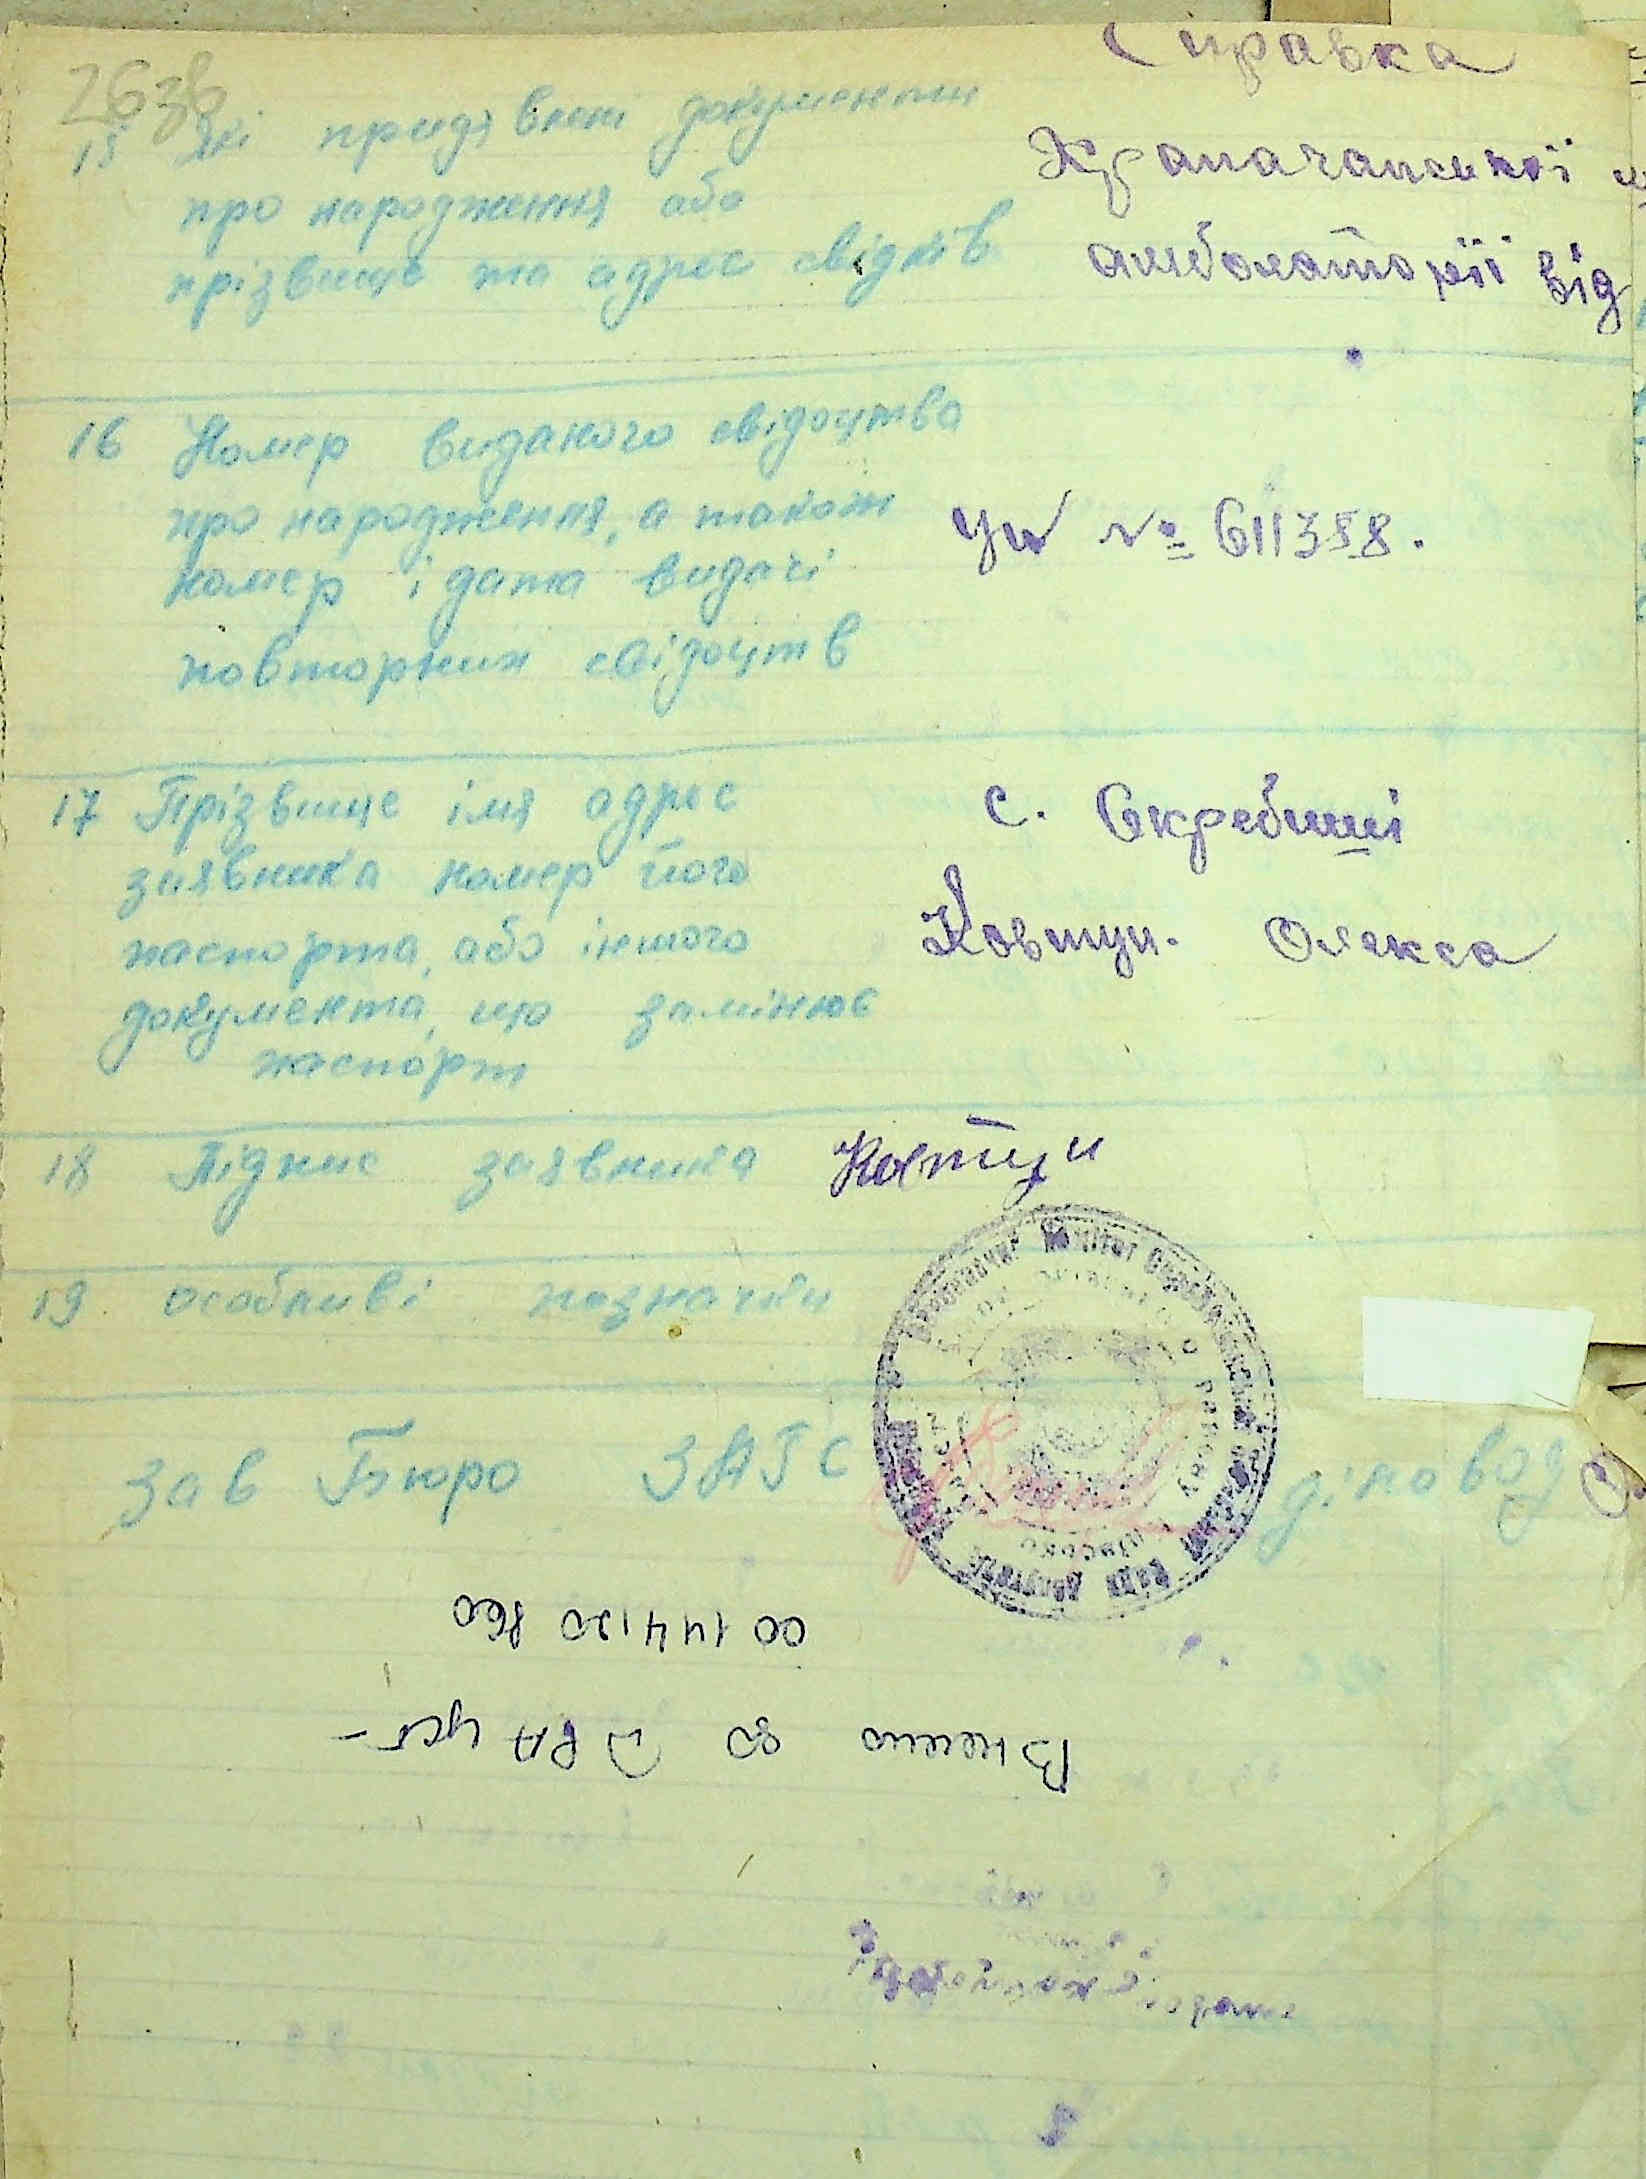 263в
Справка
15 Які предявлені документи
про народження або
прізвище та адрес свідків
амболаторії від
16 Номер виданого свідоцтва
про народження, а також
номер і дата видачі
повторних свідоцтв
№ 611358.
17 Прізвище імя адрес
заявника номер його
паспорта, або іншого
документа, що замінює
паспорт
с. Скребиші
Ковтун. Олекса
18 Підпис заявника Ковтун
19 особливі позначки
Зав Бюро ЗАГС діловод
00144120860
Внесено до ДРАЦСГ